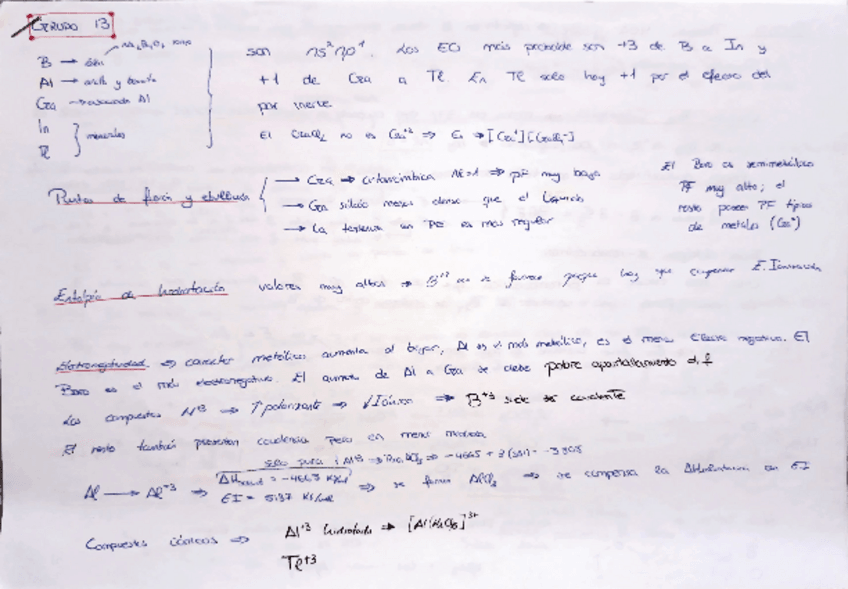 GRUPO 13
B →
Al →
Ga → Al
In
Tl } minerales
son ns²np¹. Los EO más probable son +3 de B a In y
+1 de Ga a Tl. En Tl solo hay +1 por el efecto del
par inerte
El GaCl₂ no es Ga⁺² ⇒ Es ⇒ [Ga⁺][GaCl₄⁻]
Puntos de fusión y ebullición
→ Ga ⇒ ⇒ pf muy bajo
→ Ga sólido menos denso que el líquido
→ La tendencia en PE es más regular
El Boro es semimetálico
PF muy alto; el
resto poseen PF típico
de metales (Ga*)
Entalpía de hidratación valores muy altos ⇒ B⁺³ no se forma porque hay que compensar E. Ionización
Electronegatividad ⇒ carácter metálico aumenta al bajar, Al es el más metálico, es el menos electronegativo. El
Boro es el más electronegativo. El aumento de Al a Ga se debe pobre apantallamiento d, f
Los compuestos M⁺³ ⇒ ↑ polarizante ⇒ ⇒ B⁺³ suele ser covalente
El resto también presentan covalencia pero en menor medida
solo para
Al → Al⁺³ ⇒ = -4665 KJ/mol
EI = 5137 KJ/mol ⇒ se forma ⇒ se compensa la con EI
Compuestos iónicos ⇒ Al⁺³ hidratado ⇒ [Al(H₂O)₆]³⁺
Tl⁺³